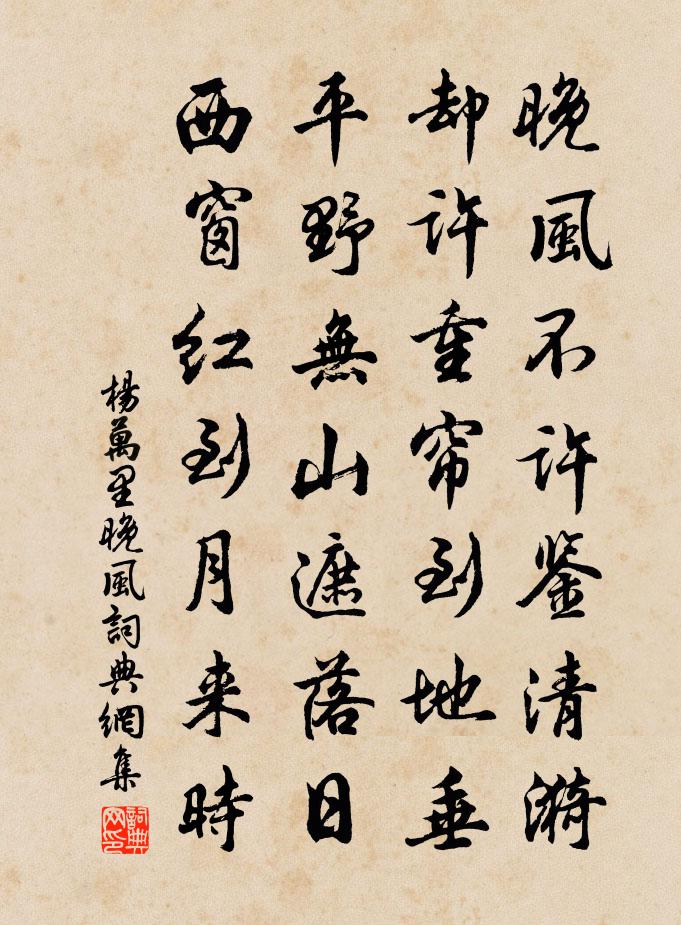 晚風不许鉴清漪
却许重帘到地垂
平野無山遮落日
西窗红到月来時
楊萬里晚風詞典網集
詞典网印